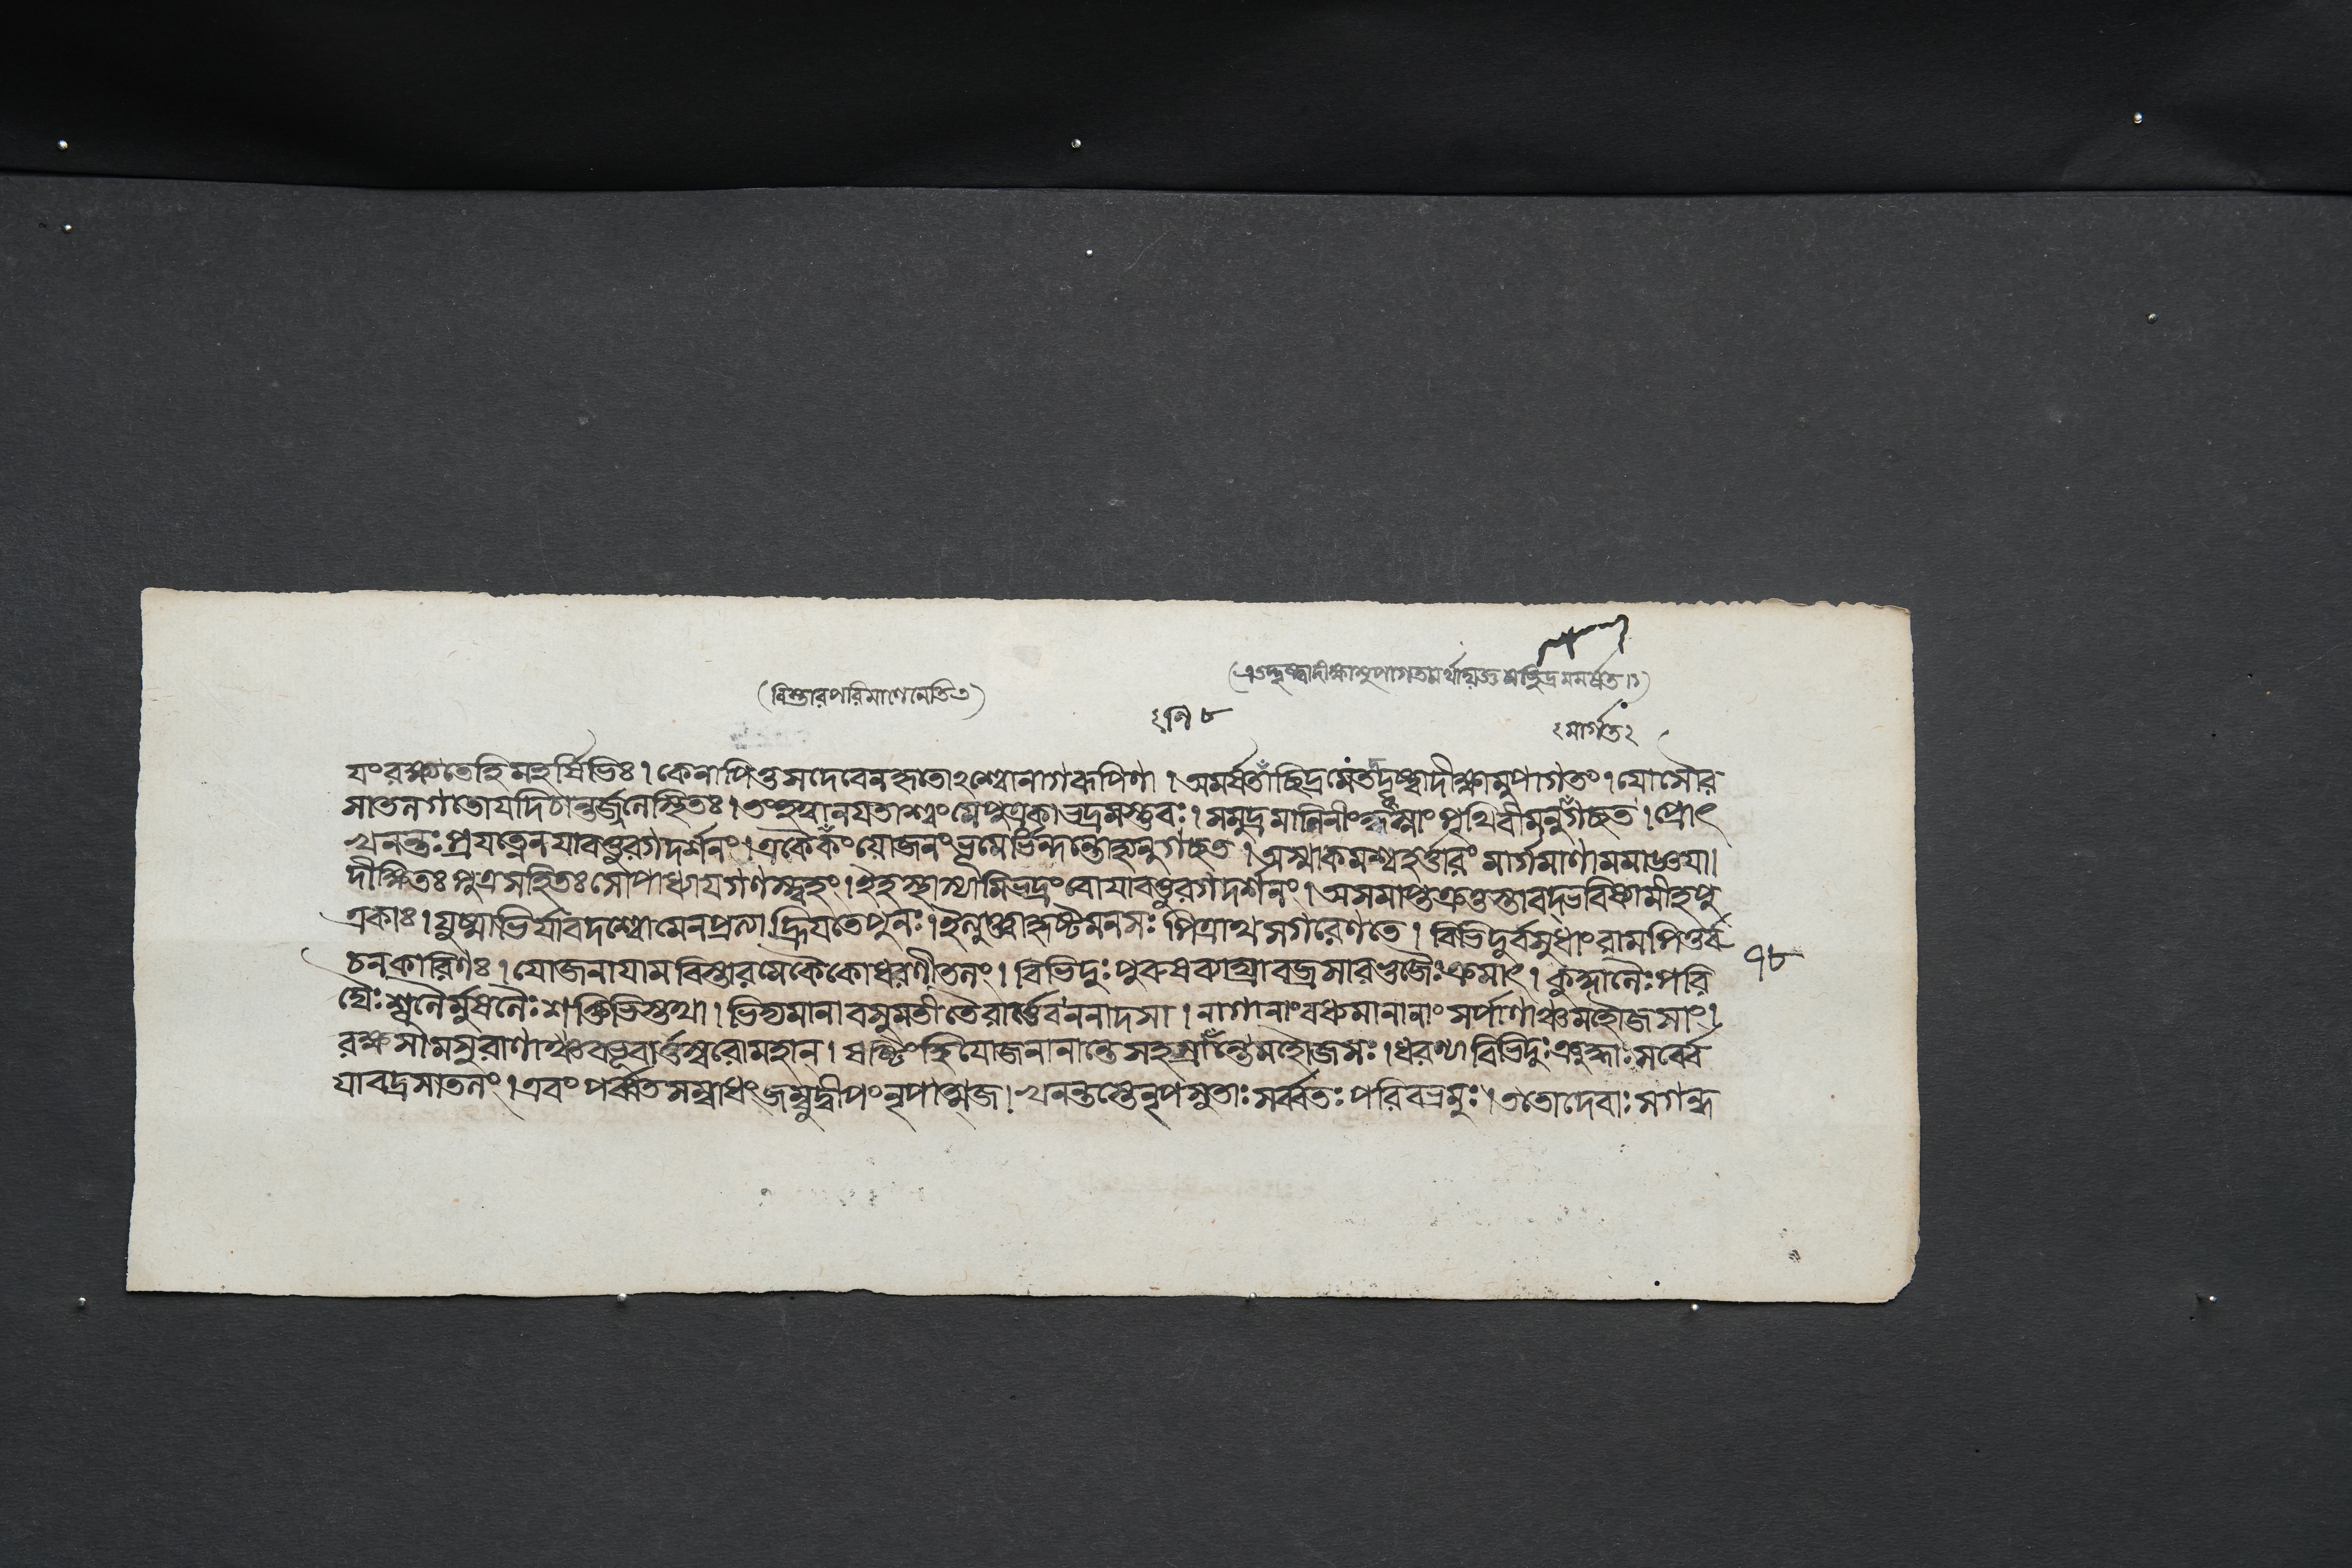 (বিস্তারপরিমাণেনেতি৩)
(এতদ্দৃষ্ট্বাদীক্ষামুপাগতমর্থাদ্যজ্ঞ মেছিদ্রমমর্ষত।১)
নি ৮
মার্গত
যংরক্ষ্যতেহিমহর্ষিভিঃ। কেনাপিতুসদেবেনহৃতোঽশ্বোনাগরূপিণা। অমর্ষতাঁছিদ্রমেতদ্দৃষ্ট্বাদীক্ষামুপাগতং। যোসৌর
সাতলগতোযদিবান্তর্জলেস্থিতঃ। তংহত্বানযতাশ্বংমেপুত্রকাভদ্রমস্তুবঃ। সমুদ্রমালিনীংকৃৎস্নাংপৃথিবীমনুগচ্ছত। প্রোৎ
খনন্তঃপ্রযত্নেনযাবত্তুরগদর্শনং। একৈকংযোজনংভূমের্ভিন্দন্তোহ্যনুগচ্ছত। অস্মাকমশ্বহর্ত্তারং মার্গমাণামমাজ্ঞযা॥
দীক্ষিতঃ পুত্রসহিতঃসোপাধ্যাযগণস্ত্বহং। ইহস্থাস্যামিভদ্রংবোযাবত্তুরগদর্শনং। অসমাপ্তক্রতুস্তাবদ্ভবিষ্যামীহপু
ত্রকাঃ। যুষ্মাভির্যাবদশ্বোমেনপ্রত্যাহ্রিযতেপুনঃ। ইত্যুক্তাহৃষ্টমনসঃ পিত্রাথসগরেণতে। বিভিদুর্বসুধাংরামপিতুর্ব
১৮
চনকারিণঃ। যোজনাযামবিস্তারমেকৈকোধরণীতলং। বিভিদুঃপুরুষব্যাঘ্রাবজ্রসারভুজৈঃক্রমাৎ। কুদ্দালৈঃপরি
ঘৈঃশূলৈর্মুষলৈঃশক্তিভিস্তথা। ভিদ্যমানাবসুমতীতৈরার্ত্তেবননাদসা। নাগানাংবধ্যমানানাং সর্পাণাঞ্চমহৌজসাং।
রক্ষসামসুরাণাঞ্চবভূবার্ত্তস্বরোমহান্। ষষ্টিংহিযোজনানান্তেসহস্রাঁন্তেমহৌজসঃ। ধরণ্যাবিভিদুঃক্রুদ্ধাঃসর্ব্বে
যাবদ্রসাতলং। এবং পর্ব্বতসম্বাধংজম্বুদ্বীপংনৃপাত্মজ। খনন্তস্তেনৃপসুতাঃ সর্ব্বতঃ পরিবভ্রমুঃ। ততোদেবাঃসগন্ধ